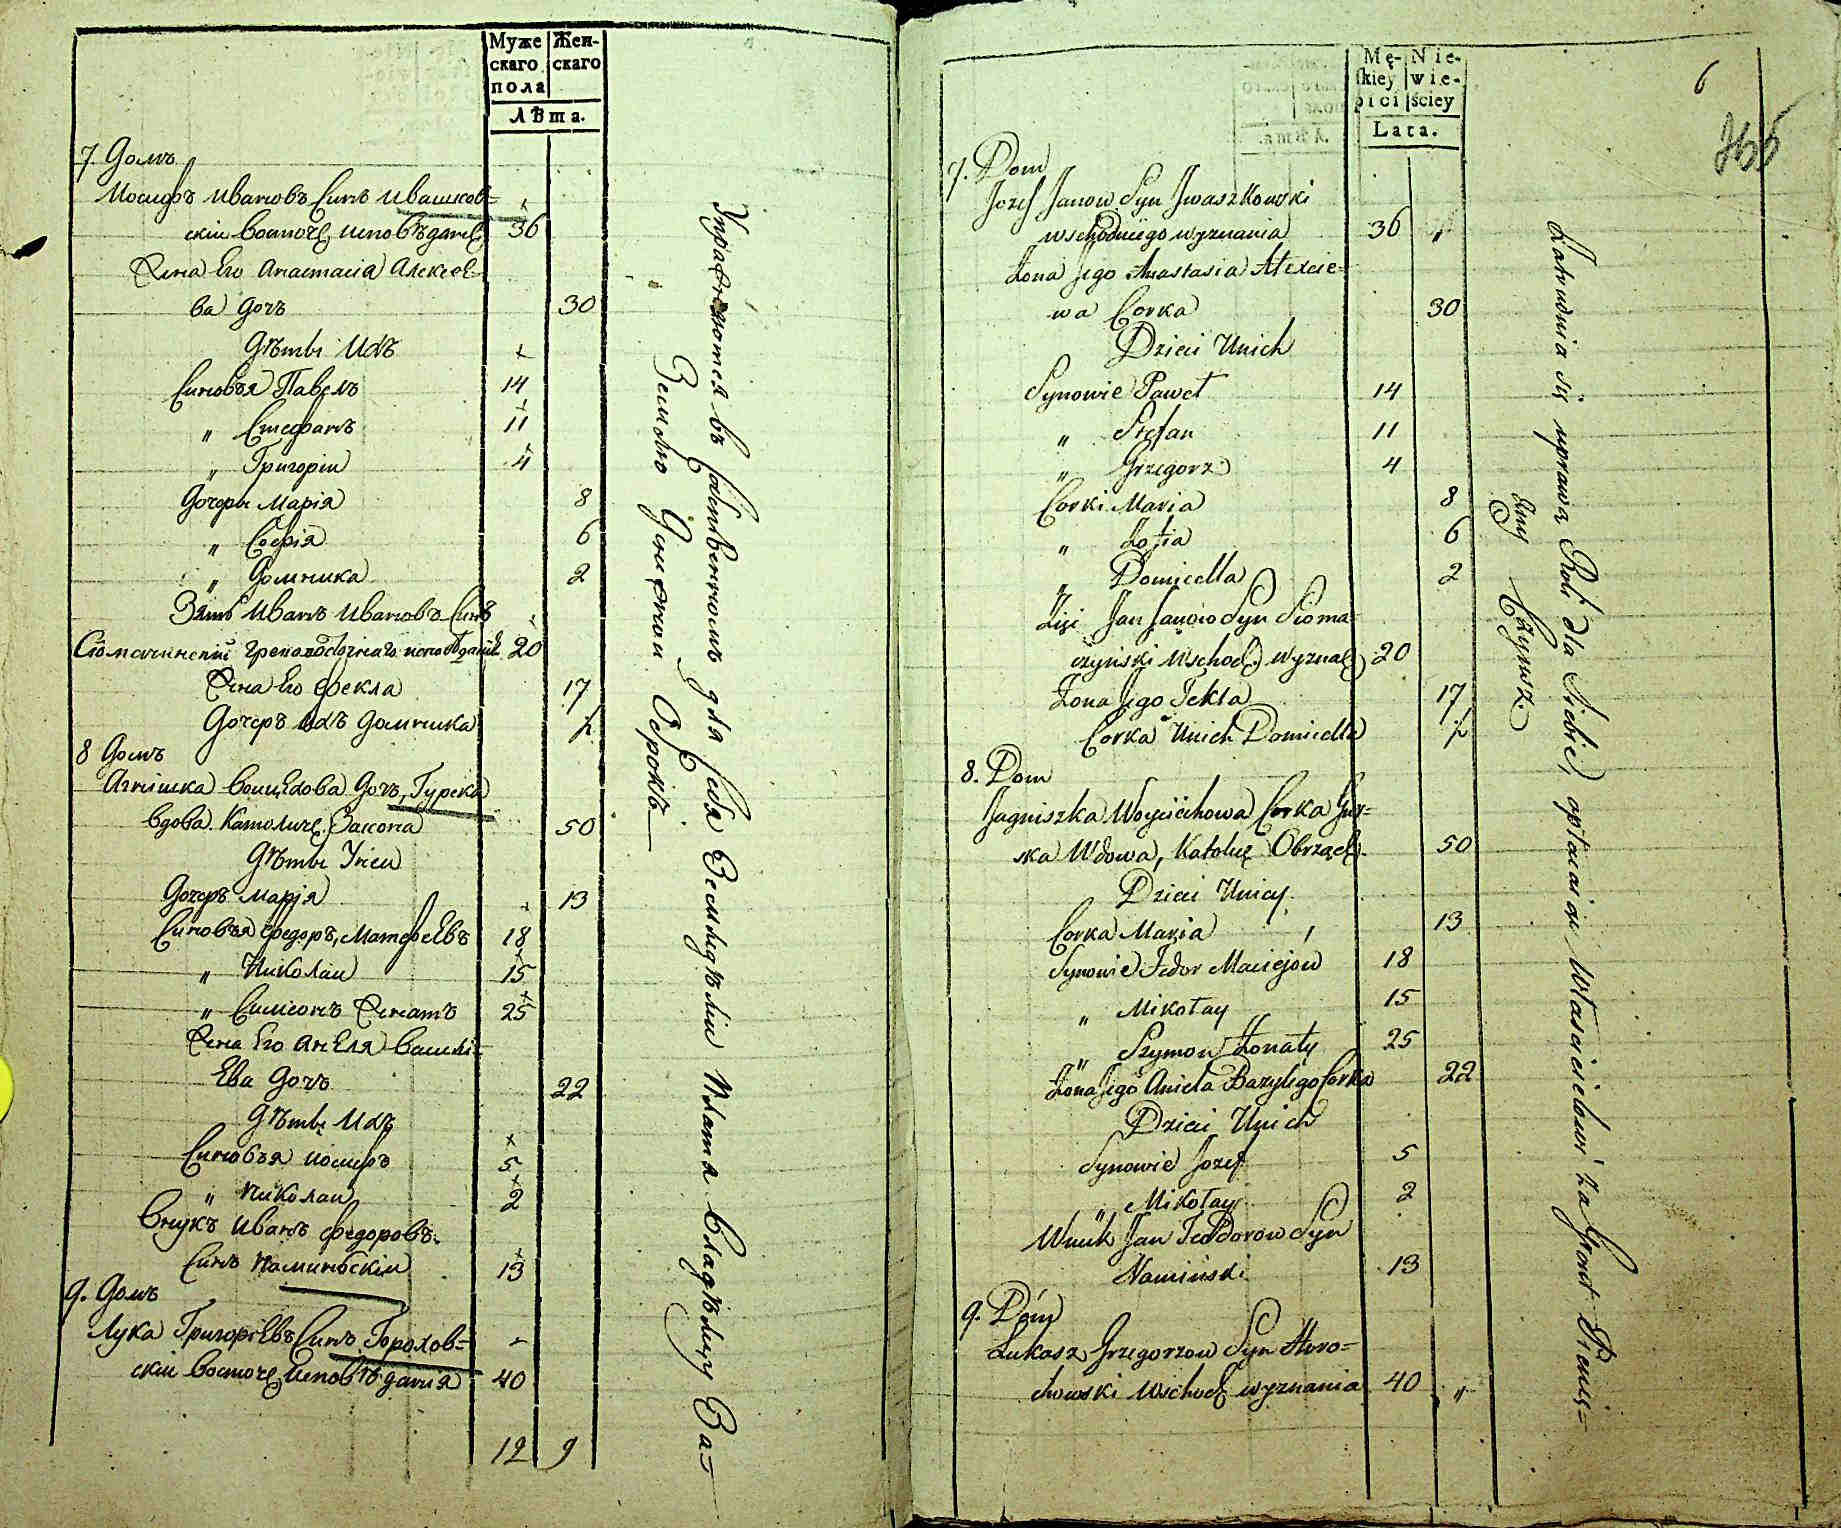 Муже Жен-
скаго скаго
пола
Лѣта.
7 Домъ
Иосифъ Ивановъ Синъ Ивашков=
скіи Восточ. исповѣданія 36
Жена Его Анастасія Алексее-
ва дочъ 30
Дѣти Ихъ
Синовья Павелъ 14
„ Стефанъ 11
„ Григоріи 4
Дочеры Марія 8
„ Софія 6
„ Домника 2
Зять Иванъ Ивановъ Синъ
20
Жена Его Фекла 17
Дочеръ Ихъ Домника
8 Домъ
Агнишка Дочъ Гурска
вдова Католич. Закона 50
Дѣти Унеи
Дочеръ Марія 13
Синовья Федоръ Матфеевъ 18
„ Николаи 15
„ Симеонъ Женатъ 25
Жена Его Анеля Василі=
Ева Дочъ 22
Дѣти Ихъ
Синовья Иосифъ 5
„ Николаи 2
Внукъ Иванъ Федоровъ
Синъ Наминьскіи 13
9. Домъ
Лука Григорьевъ Синъ Горохов=
скіи Восточ. Исповѣданія 40
12 9
Упражняются въ собственномъ для себя Земледѣліи платя Владѣлцу За
Землю Денежной Оброкъ
Mę- Nie-
skiey wie-
płci ściey
Lata.
6
7. Dom
Jozef Janow Syn Jwaszkowski
wschodniego wyznania 36 „
Żona Jego Anastasia Alexie=
wa Corka 30
Dzieci Unich
Synowie Paweł 14
„ Stefan 11
„ Grzegorz 4
Corki Maria 8
„ Zofia 6
„ Domicella 2
Zięć Jan Janow Syn Sioma-
czyński Wschod. wyznań 20
Żona Jego Tekla 17
Corka Unich Domicella
8. Dom
Jagniszka Woyciechowa Corka Gur=
ska Wdowa, Katolic. Obrząd. 50
Dzieci Unicy
Corka Maria 13
Synowie Fedor Maciejow 18
„ Mikołay 15
„ Szymon Żonaty 25
Żona Jego Aniela Bazylego Corka 22
Dzieci Unich
Synowie Jozef 5
„ Mikołay 2
Wnuk Jan Teodorow Syn
Naminski 13
9. Dom
Łukasz Grzegorzow Syn Horo=
chowski Wschod. wyznania 40 „
Zatrudnia się uprawą Roli dla Siebie, opłacaiąc Właścicielowi za Grunt Pienię=
żny Czynsz.